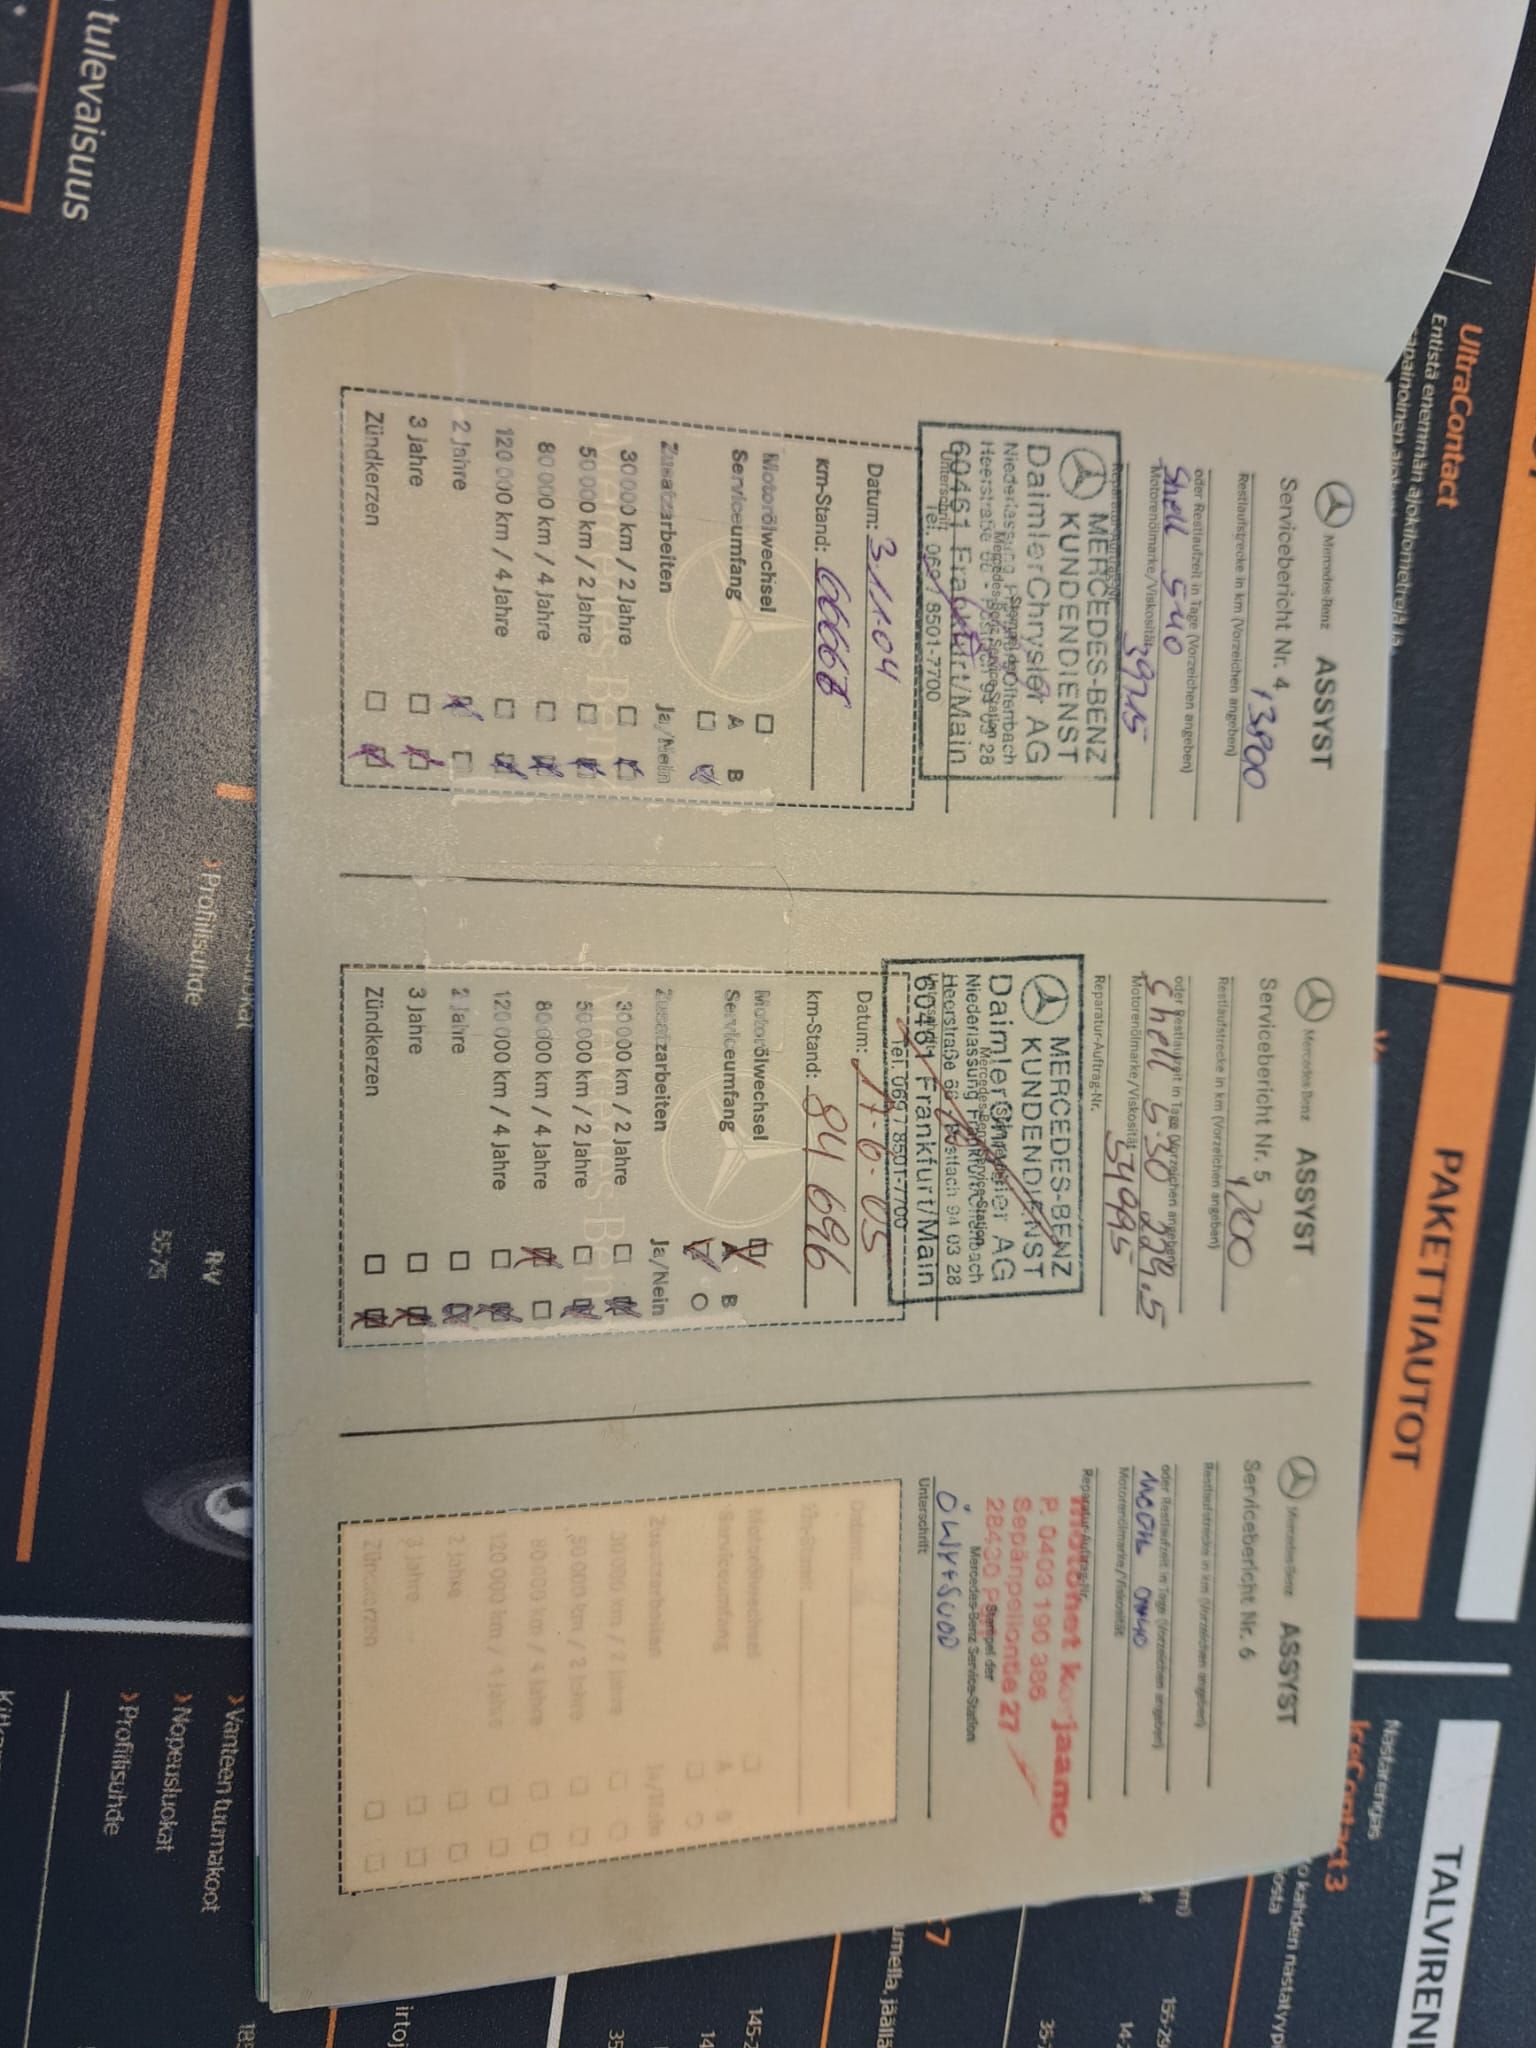 Mercedes-Benz ASSYST
Servicebericht Nr. 4
13800
Restlaufstrecke in km (Vorzeichen angeben)
oder Restlaufzeit in Tage (Vorzeichen angeben)
Shell 540
Motorenölmarke/Viskosität
39715
Reparatur-Auftrag-Nr.
MERCEDES-BENZ
KUNDENDIENST
DaimlerChrysler AG
Niederlassung Frankfurt/Offenbach
Stempel der
Mercedes-Benz Service-Station
60461 Frankfurt/Main
Unterschrift
Tel. 069 / 8501-7700
Datum: 3.11.04
km-Stand: 66668
Motorölwechsel
A B
Serviceumfang
Zusatzarbeiten Ja/Nein
30 000 km / 2 Jahre
50 000 km / 2 Jahre
80 000 km / 4 Jahre
120 000 km / 4 Jahre
2 Jahre
3 Jahre
Zündkerzen
Mercedes-Benz ASSYST
Servicebericht Nr. 5
1200
Restlaufstrecke in km (Vorzeichen angeben)
oder Restlaufzeit in Tage (Vorzeichen angeben)
Shell 5-30 229.5
Motorenölmarke/Viskosität
54995
Reparatur-Auftrag-Nr.
MERCEDES-BENZ
KUNDENDIENST
DaimlerChrysler AG
Niederlassung Frankfurt/Offenbach
Mercedes-Benz Service-Station
Heerstraße 66 · Postfach 94 03 28
60461 Frankfurt/Main
Unterschrift
Tel. 069 / 8501-7700
Datum: 17-6-05
km-Stand: 84 696
Motorölwechsel
A B
Serviceumfang
Zusatzarbeiten Ja/Nein
30 000 km / 2 Jahre
50 000 km / 2 Jahre
80 000 km / 4 Jahre
120 000 km / 4 Jahre
2 Jahre
3 Jahre
Zündkerzen
Mercedes-Benz ASSYST
Servicebericht Nr. 6
Restlaufstrecke in km (Vorzeichen angeben)
oder Restlaufzeit in Tage (Vorzeichen angeben)
Motorenölmarke/Viskosität
Reparatur-Auftrag-Nr.
korjaamo
P. 0403 190 386
Sepänpellontie 27
28430
Stempel der
Mercedes-Benz Service-Station
Unterschrift
Datum:
km-Stand:
Motorölwechsel
A B
Serviceumfang
Zusatzarbeiten Ja/Nein
30 000 km / 2 Jahre
50 000 km / 2 Jahre
80 000 km / 4 Jahre
120 000 km / 4 Jahre
2 Jahre
3 Jahre
Zündkerzen
tulevaisuus
UltraContact
Entistä enemmän ajokilometrejä
PAKETTIAUTOT
TALVIREN
Nastarengas
IceContact 3
kahden nastatyypi
Profiilisuhde
R-V
55-75
Vanteen tuumakoot
Nopeusluokat
Profiilisuhde